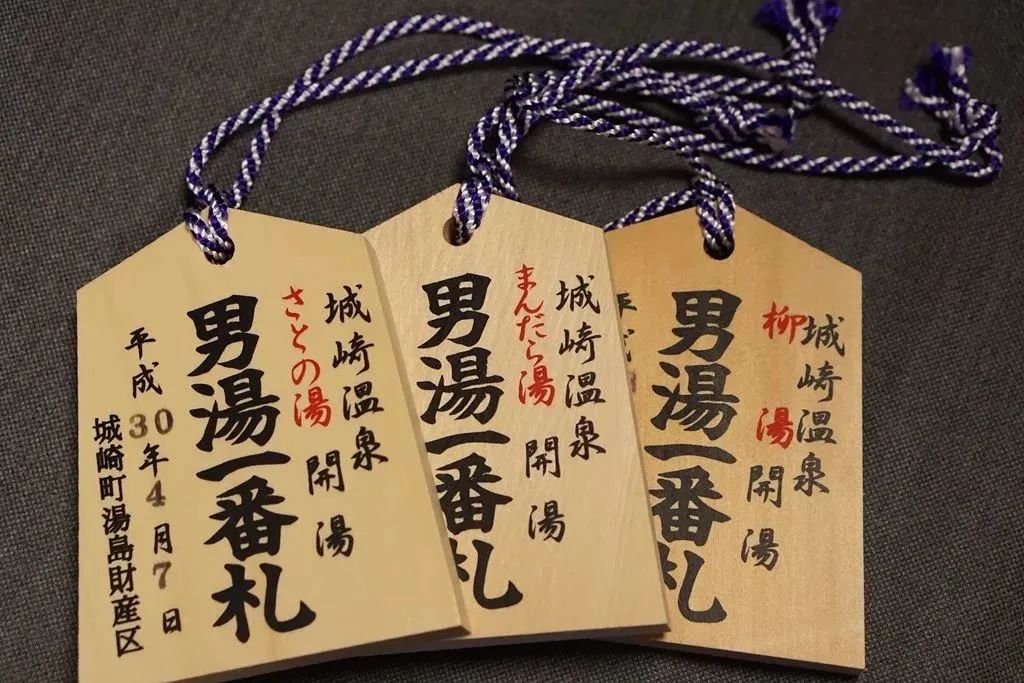 城崎温泉
さとの湯 開湯
男湯一番札
平成30年4月7日
城崎町湯島財産区
城崎温泉
まんだら湯 開湯
男湯一番札
城崎温泉
柳湯 開湯
男湯一番札
平成